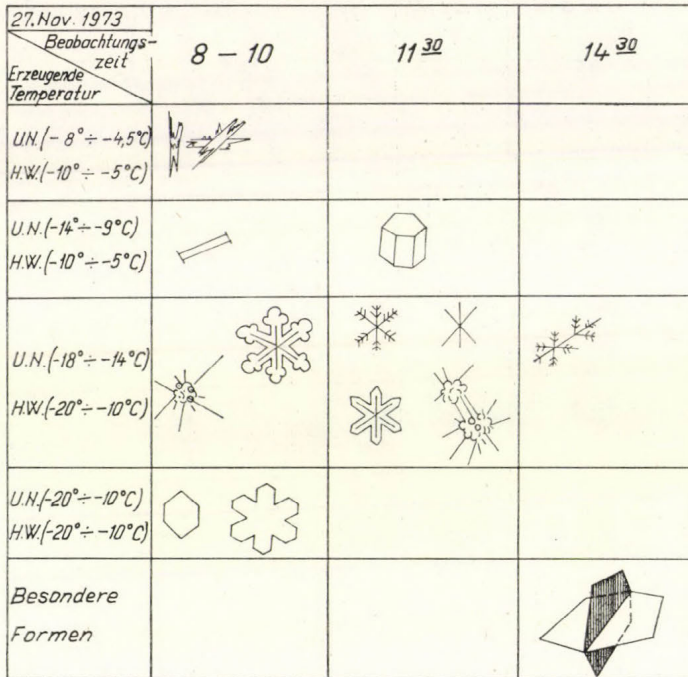 27. Nov. 1973
Beobachtungs-
zeit
Erzeugende
Temperatur
8 – 10
11 30
14 30
U.N. (- 8° ÷ -4,5°C)
H.W. (-10° ÷ -5°C)
U.N. (-14° ÷ -9°C)
H.W. (-10° ÷ -5°C)
U.N. (-18° ÷ -14°C)
H.W. (-20° ÷ -10°C)
U.N. (-20° ÷ -10°C)
H.W. (-20° ÷ -10°C)
Besondere
Formen